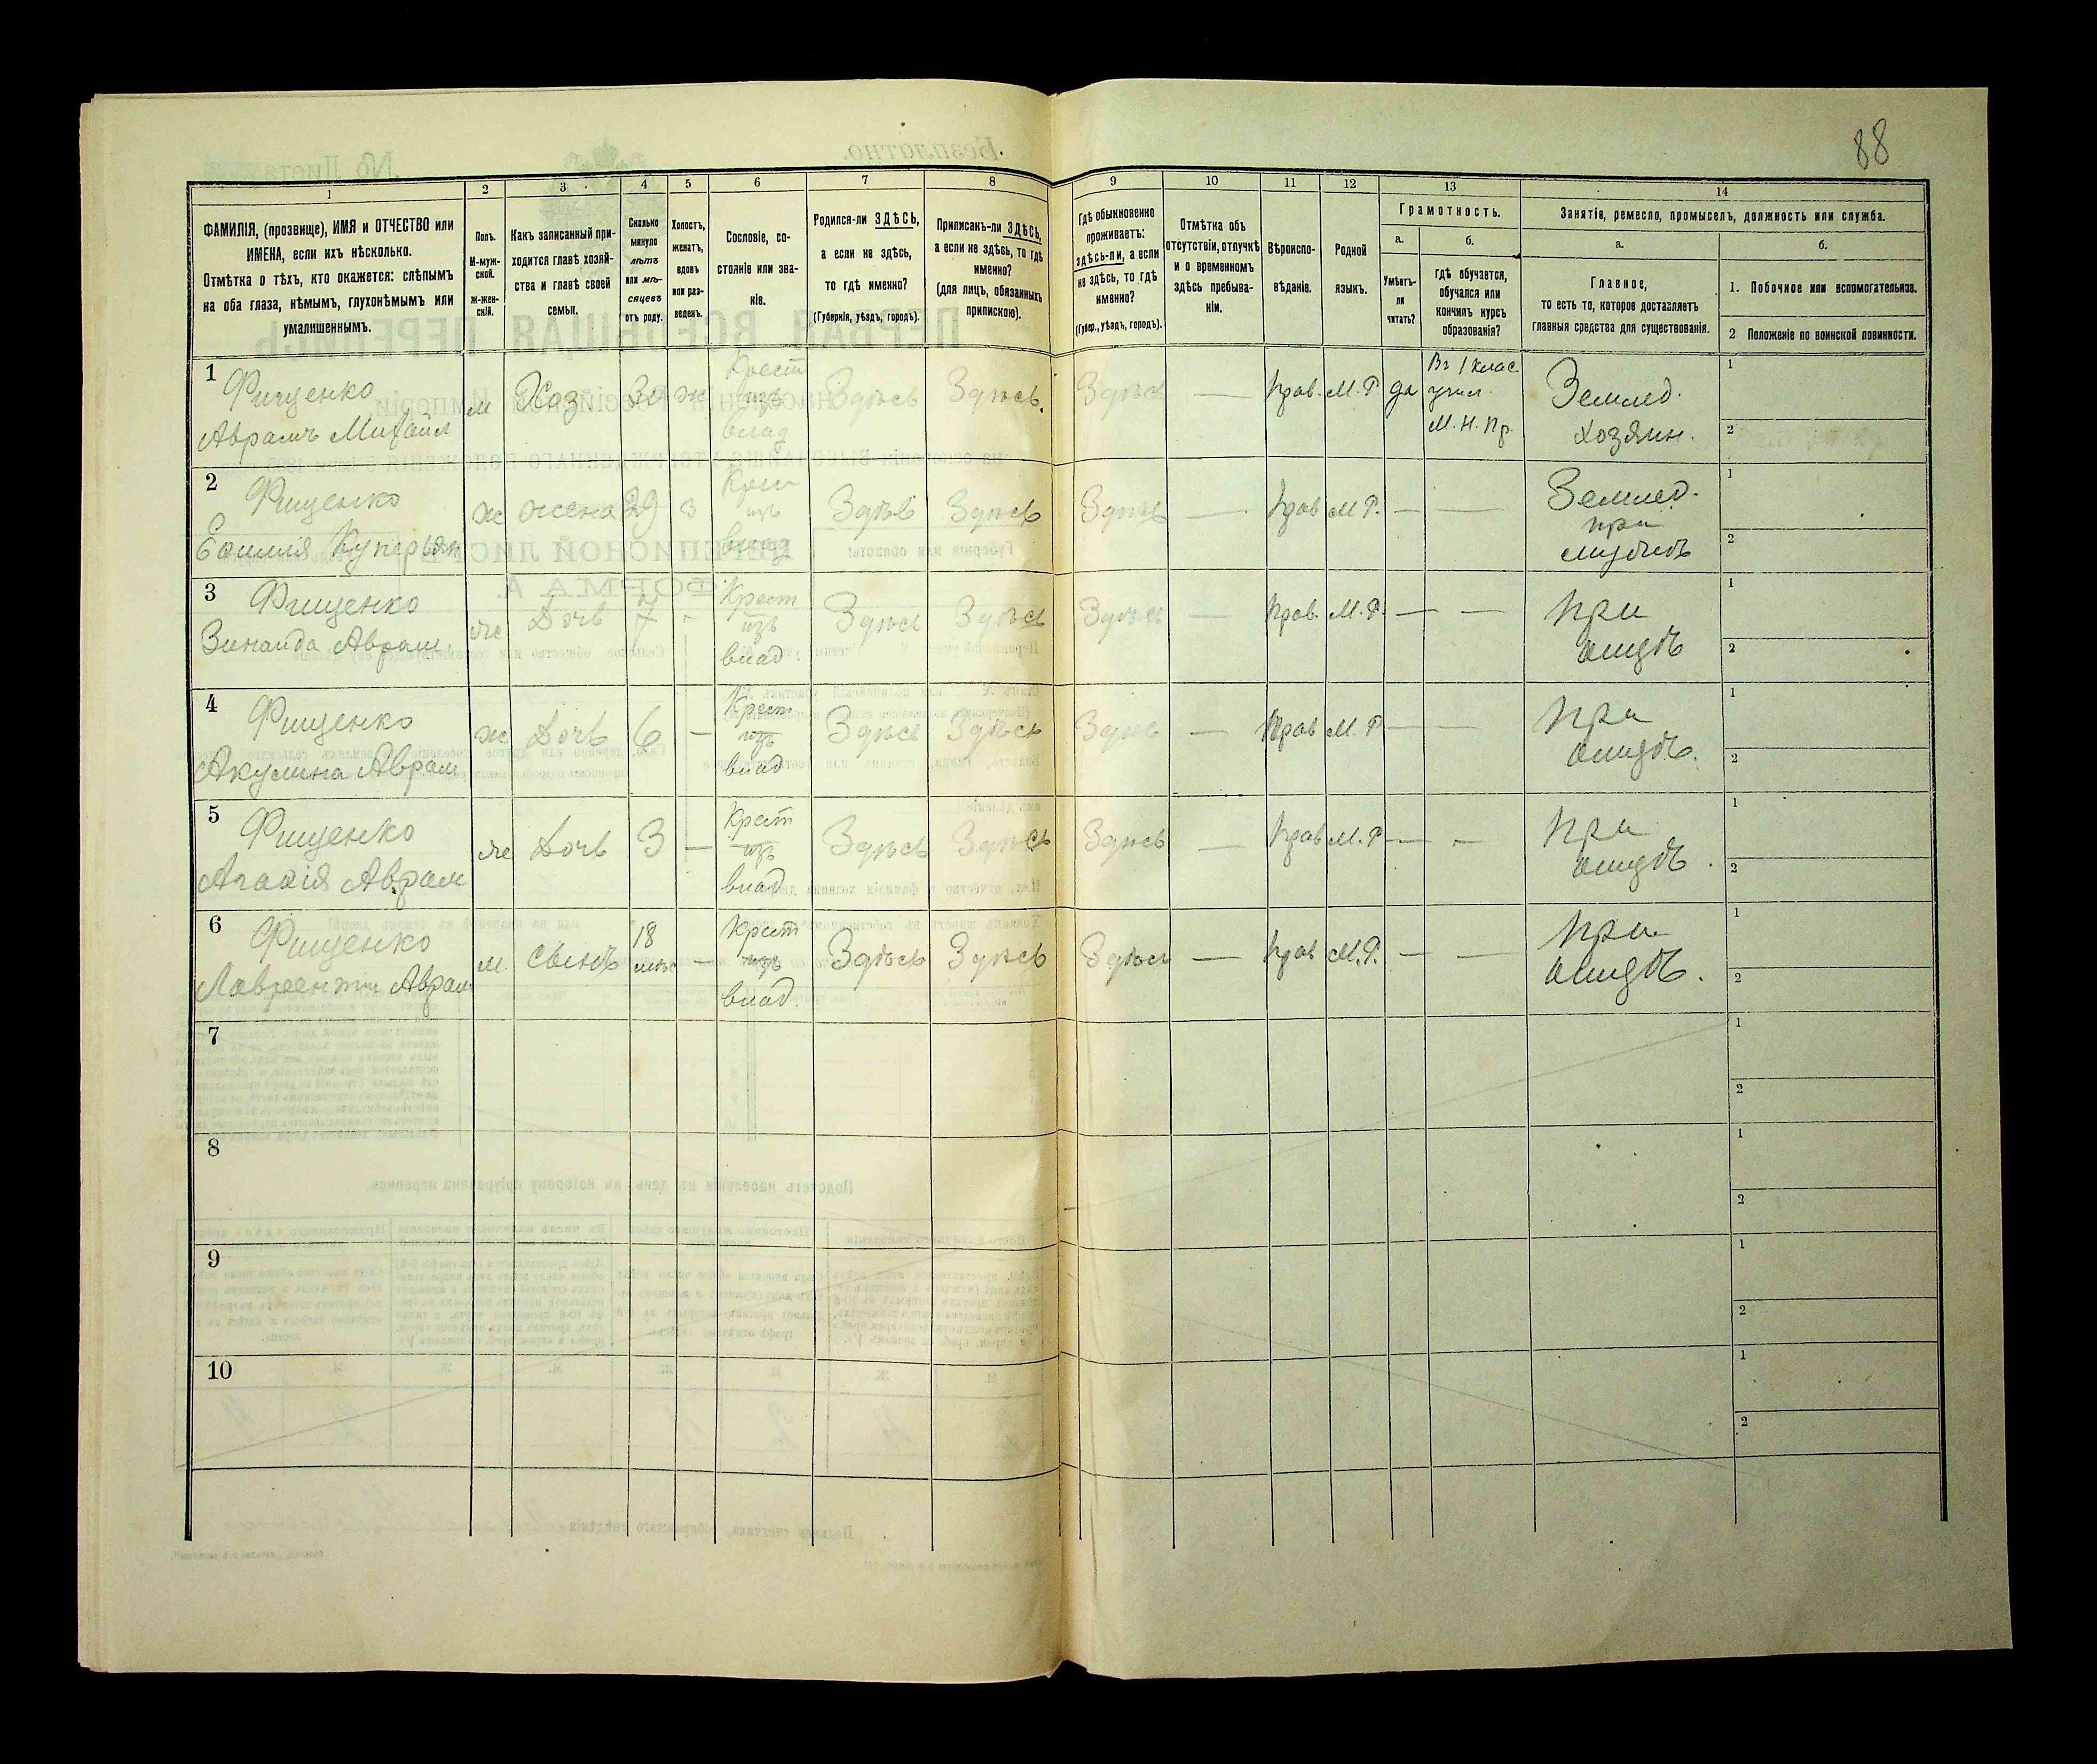 88
1
2
3
4
5
6
7
8
9
10
11
12
13
14
ФАМИЛІЯ, (прозвище), ИМЯ и ОТЧЕСТВО или
ИМЕНА, если ихъ нѣсколько.
Отмѣтка о тѣхъ, кто окажется: слѣпымъ
на оба глаза, нѣмымъ, глухонѣмымъ или
умалишеннымъ.
Полъ.
М-муж-
ской.
Ж-жен-
скій.
Какъ записанный при-
ходится главѣ хозяй-
ства и главѣ своей
семьи.
Сколько
минуло
лѣтъ
или мѣ-
сяцевъ
отъ роду.
Холостъ,
женатъ,
вдовъ
или раз-
веденъ.
Сословіе, со-
стояніе или зва-
ніе.
Родился-ли ЗДѢСЬ,
а если не здѣсь,
то гдѣ именно?
(Губернія, уѣздъ, городъ).
Приписанъ-ли ЗДѢСЬ,
а если не здѣсь, то гдѣ
именно?
(для лицъ, обязанныхъ
припискою).
Гдѣ обыкновенно
проживаетъ:
здѣсь-ли, а если
не здѣсь, то гдѣ
именно?
(Губер., уѣздъ, городъ).
Отмѣтка объ
отсутствіи, отлучкѣ
и о временномъ
здѣсь пребыва-
ніи.
Вѣроиспо-
вѣданіе.
Родной
языкъ.
Грамотность.
а.
Умѣетъ-
ли
читать?
б.
гдѣ обучается,
обучался или
кончилъ курсъ
образованія?
Занятіе, ремесло, промыселъ, должность или служба.
а.
Главное,
то есть то, которое доставляетъ
главныя средства для существованія.
б.
1. Побочное или вспомогательное.
2 Положеніе по воинской повинности.
1
Фищенко
Аврамъ Михайл
м
Хоз
30
ж
Крест
изъ
влад
Здѣсь
Здѣсь.
Здѣсь
—
Прав.
М. Р
да
Въ 1 клас
учил.
М. Н. Пр.
Землед.
хозяин.
1
2
2
Фищенко
Куперьян
ж
жена
29
з
Крест
изъ
влад
Здѣсь
Здѣсь
Здѣсь
—
Прав
М Р.
—
—
Землед.
при
мужѣ
1
2
3
Фищенко
Зинаида Аврам.
ж
Дочь
7
-
Крест
изъ
влад.
Здѣсь
Здѣсь
Здѣсь
—
Прав.
М. Р.
—
—
При
отцѣ
1
2
4
Фищенко
Акулина Аврам
ж
Дочь
6
—
Крест
изъ
влад
Здѣсь
Здѣсь
Здѣсь
—
Прав
М. Р
—
—
При
отцѣ.
1
2
5
Фищенко
Аврам
ж
Дочь
3
—
Крест
изъ
влад
Здѣсь
Здѣсь
Здѣсь
—
Прав
М. Р
—
-
При
отцѣ.
1
2
6
Фищенко
Лаврентiи Аврам
м
сынъ
18
мѣс
—
Крест
изъ
влад.
Здѣсь
Здѣсь
Здѣсь
—
Прав
М. Р.
—
—
При
отцѣ.
1
2
7
1
2
8
1
2
9
1
2
10
1
2